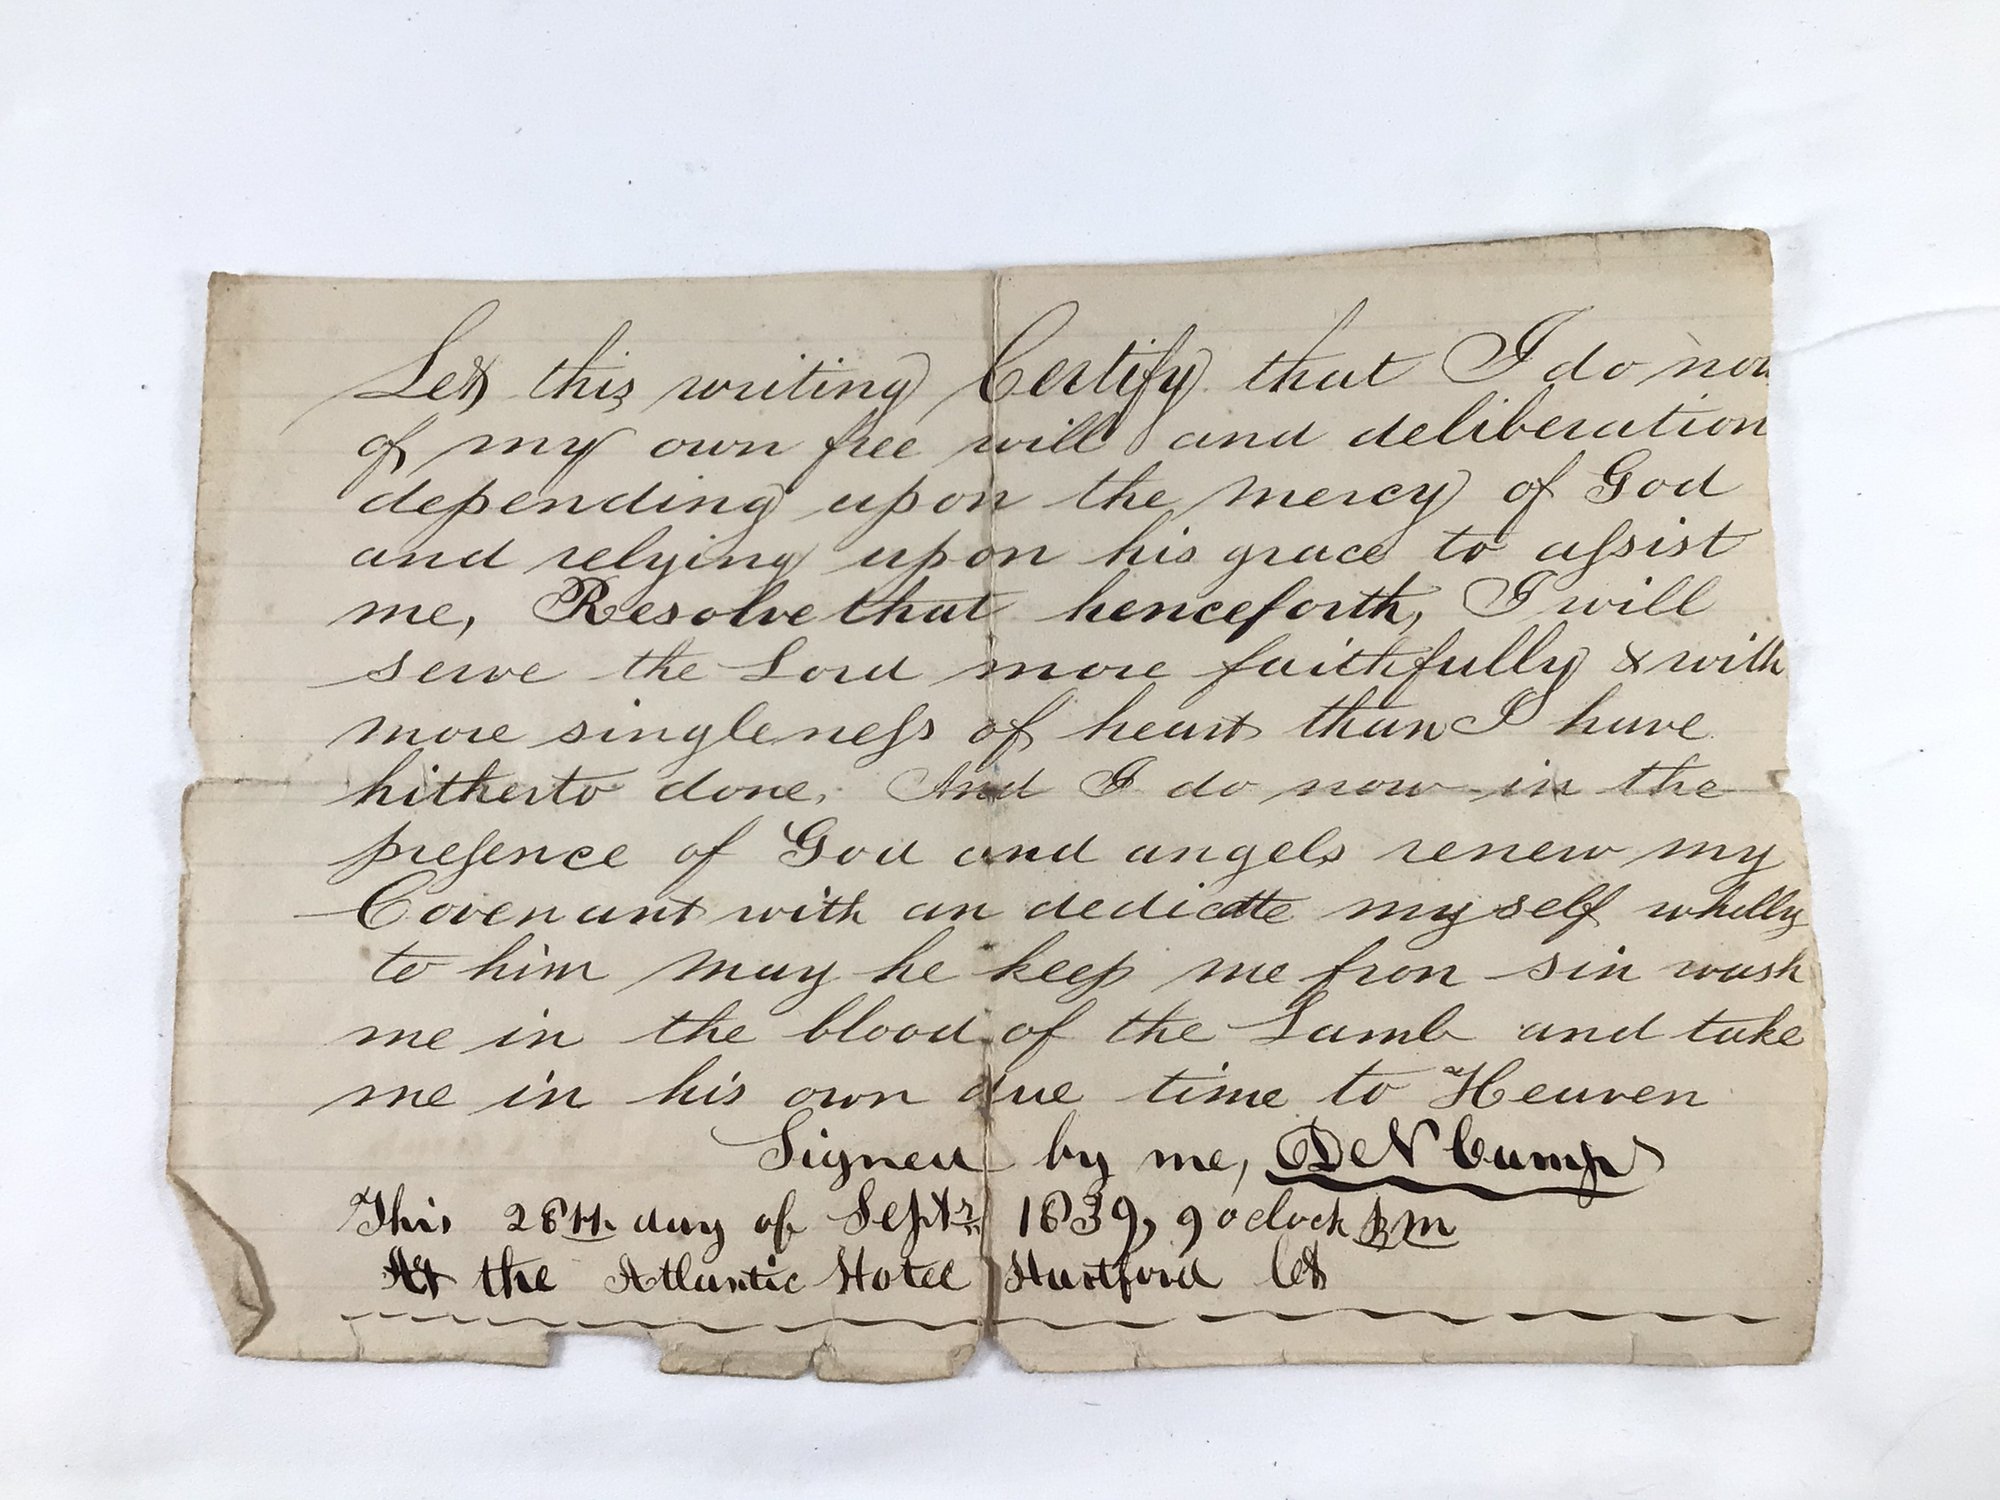 Let this writing Certify that I do now
of my own free will and deliberation
depending upon the mercy of God
and relying upon his grace to aſsist
me, Resolve that henceforth, I will
serve the Lord more faithfully & with
more singleneſs of heart than I have
hitherto done, And I do now in the
preſence of God and angels renew my
Covenant with an dedicate myself wholly
to him may he keep me fron sin wash
me in the blood of the Lamb and take
me in his own due time to Heaven
Signed by me, DeN Camp
This 28th day of Septr 1839, 9 oclock PM
At the Atlantic Hotel Hartford Ct